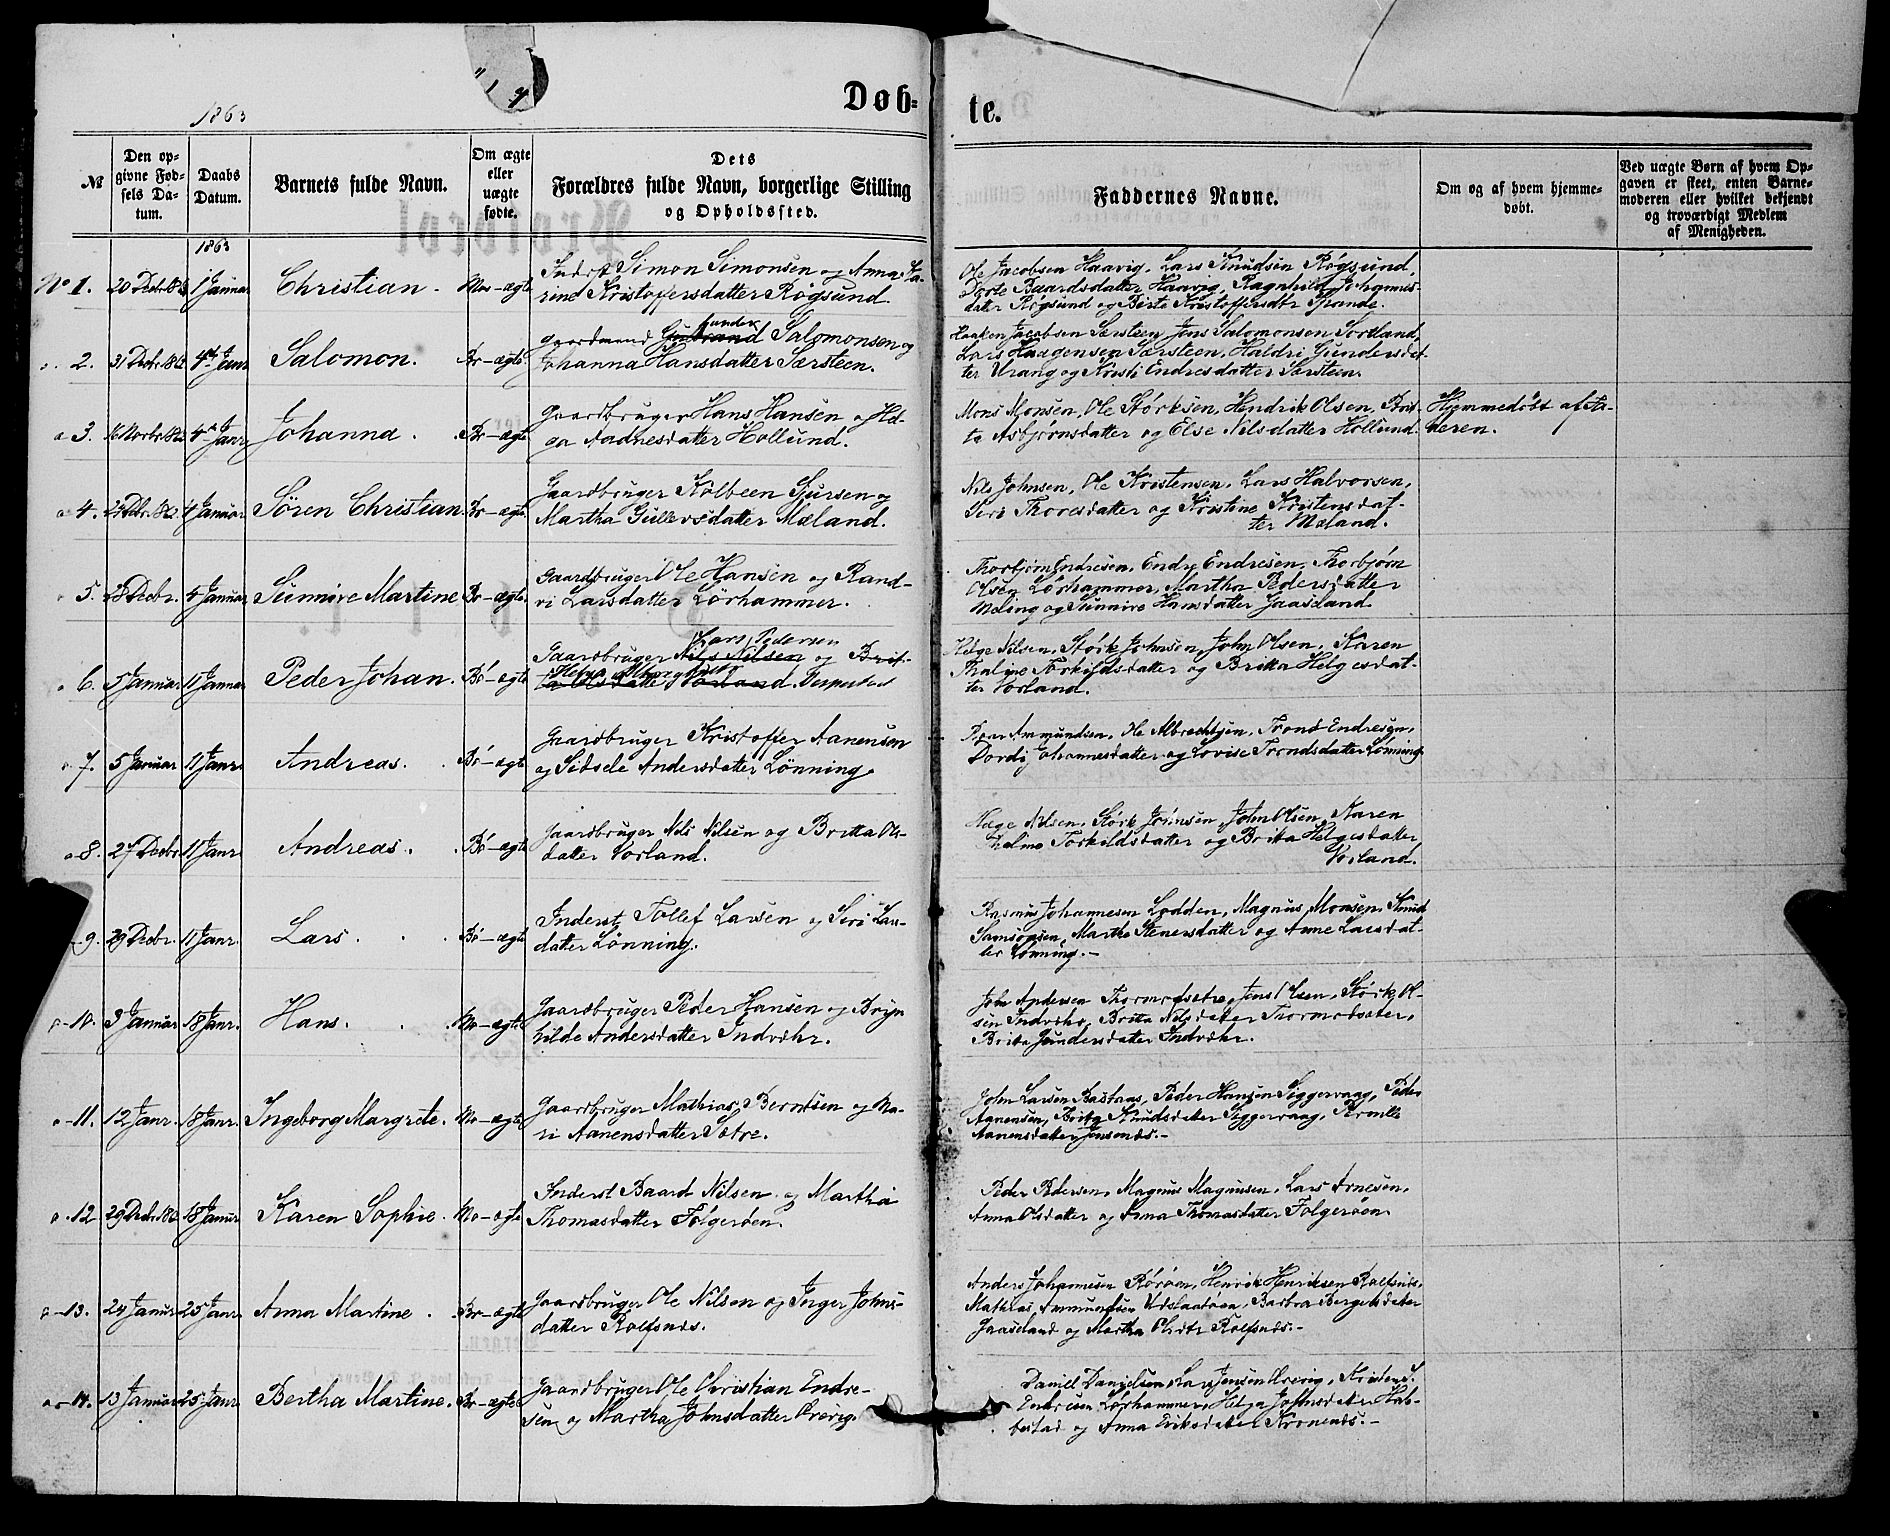 1863
Døb-
te.
№
Den op-
givne Fød-
sels Da-
tum.
Daabs
Datum.
Barnets fulde Navn.
Om ægte
eller
uægte
fødte.
Dets
Forældres fulde Navn, borgerlige Stilling
og Opholdssted.
Faddernes Navne.
Om og af hvem hjemme-
døbt.
Ved uægte Børn af hvem Op-
gaven er skeet, enten Barne-
moderen eller hvilket bekjendt
og troværdigt Medlem
af Menigheden.
1863
No 1. 20 Decbr 1 Januar Christian. Mo-ægte
Inderst Simon Simonsen og Anna Ka-
rine Kristoffersdatter Røgsund
Ole Jacobsen Haavig, Lars Knudsen Røgsund,
Dorte Baardsdatter Haavig, Ragnhild Johannis-
datter Røgsund og Berte Kristoffersdtr Spande.
2. 31 Decbr 4de Janr Salomon. Br-ægte
Gunder
Gaardmand Gudbrand Salomonsen og
Johanna Hansdatter Særsteen.
Haaken Jacobsen Særsteen, Jens Salomonsen Sortland,
Lars Haagensen Særsteen, Haldri Gundersdat-
ter Vrang og Kristi Endresdatter Særsteen.
3. 4de Janr Johanna. Br-ægte
Gaardbruger Hans Hansen og Hel-
ga Aadnesdatter Hollund.
Mons Monsen, Ole Størksen, Hendrik Olsen, Brit-
ta Asbjørnsdatter og Else Nilsdatter Hollund.
Hjemmedøbt af Fa-
deren.
4. 4 Januar Søren Christian Br-ægte
Gaardbruger Kolbeen Sjursen og
Martha Gullevsdatter Mæland.
Nils Johnsen, Ole Kristensen, Lars Halvorsen,
Siri Thoresdatter og Kristine Kristensdat-
ter Mæland.
5. 28 Decbr. Januar Sunnive Martine Br-ægte
Gaardbruger Ole Hansen og Rand-
vi Larsdatter Lørhammer.
Thorbjørn Endresen, Endre Endresen, Thorbjørn
Olsen Lørhammer, Martha Pedersdatter
Meling og Sunnive Hansdatter Gaasland.
6. 5 Januar 11 Januar Peder Johan. Bø-ægte
Lars Pedersen
Gaardbruger Nils Nilsen og Brit-
ta Olsdatter Vorland.
Helge Nilsen, Størk Johnsen, John Olsen, Karen
Thaline Torkildsdatter og Britta Helgesdat-
ter Vorland.
7. 5 Januar 11 Janr. Andreas. Bø-ægte
Gaardbruger Kristoffer Aanensen
og Sidsele Andersdatter Lønning.
Ammundsen, Ole Albrechtsen, Trond Endresen,
Dordi Johannesdatter og Lovise Trondsdatter Lønning
8. 27 Decbr 11 Janr. Andreas. Bø-ægte
Gaardbruger Nils Nilsen og Britta Ols-
datter Vorland.
Helge Nilsen, Størk Johnsen, John Olsen, Karen
Torkildsdatter og Britta Helgesdatter
Vorland.
9. 29 Decbr. 11 Janr. Lars. Bø-ægte
Inderst Tollef Larsen og Siri Lars-
datter Lønning.
Rasmus Johannesen Lodden, Magnus Monsen, Knud
Samsonsen, Martha Stenersdatter og Anne Larsdat-
ter Lønning.-
10. 3 Januar 18 Janr. Hans. Mo-ægte
Gaardbruger Peder Hansen og Bryn
hilde Andersdatter Indvehr.
John Andersen Thormodsætre, Jens Olsen, Størk Ol-
sen Indvehr, Britta Nilsdatter Thormodsæter,
Britta Gundersdatter Indvehr.
11. 12 Janr. 18 Janr. Ingeborg Margrete. Mo-ægte
Gaardbruger Mathias Berntsen og Ma-
ri Aanensdatter Sætre.
John Larsen Bastnas, Peder Hansen Siggervaag, Peder
Aanensen, Britta Knudsdatter Siggervaag, Pernille
Aanensdatter Jensenæs.-
12 29 Decbr. 18 Janur Karen Sophie. Mo-ægte
Inderst Baard Nilsen og Martha
Thomasdatter Folgerøen.
Peder Pedersen, Magnus Magnusen, Lars Arnesen,
Anna Olsdatter og Anna Thomasdatter Folgerøen.
13. 24 Janur 25 Janr. Anna Martine. Br-ægte
Gaardbruger Ole Nilsen og Inger Johns-
datter Rolfsnæs.
Anders Johannesen Rørøen, Henrik Henriksen Rolfsnæs,
Mathias Ammundsen, Barbra Bergesdatter
Gaasland og Martha Olsdtr Rolfsnæs.-
14. 13 Januar 25 Janr. Bertha Martine. Br-ægte
Gaardbruger Ole Christian Endre-
sen og Martha Johnsdatter Urevig.
Daniel Danielsen, Lars Jensen Urevig,
Endresen Lørhammer, Helga Johnsdatter Hab-
bestad og Anna Eriksdatter Kronenæs.-